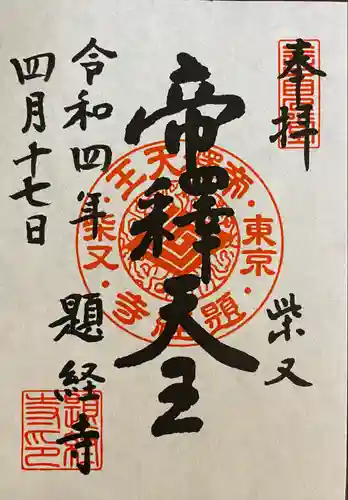 奉拝
柴又
帝釋天王
令和四年
題経寺
四月十七日
帝釋天王
東京
題経寺
柴又
題経寺印